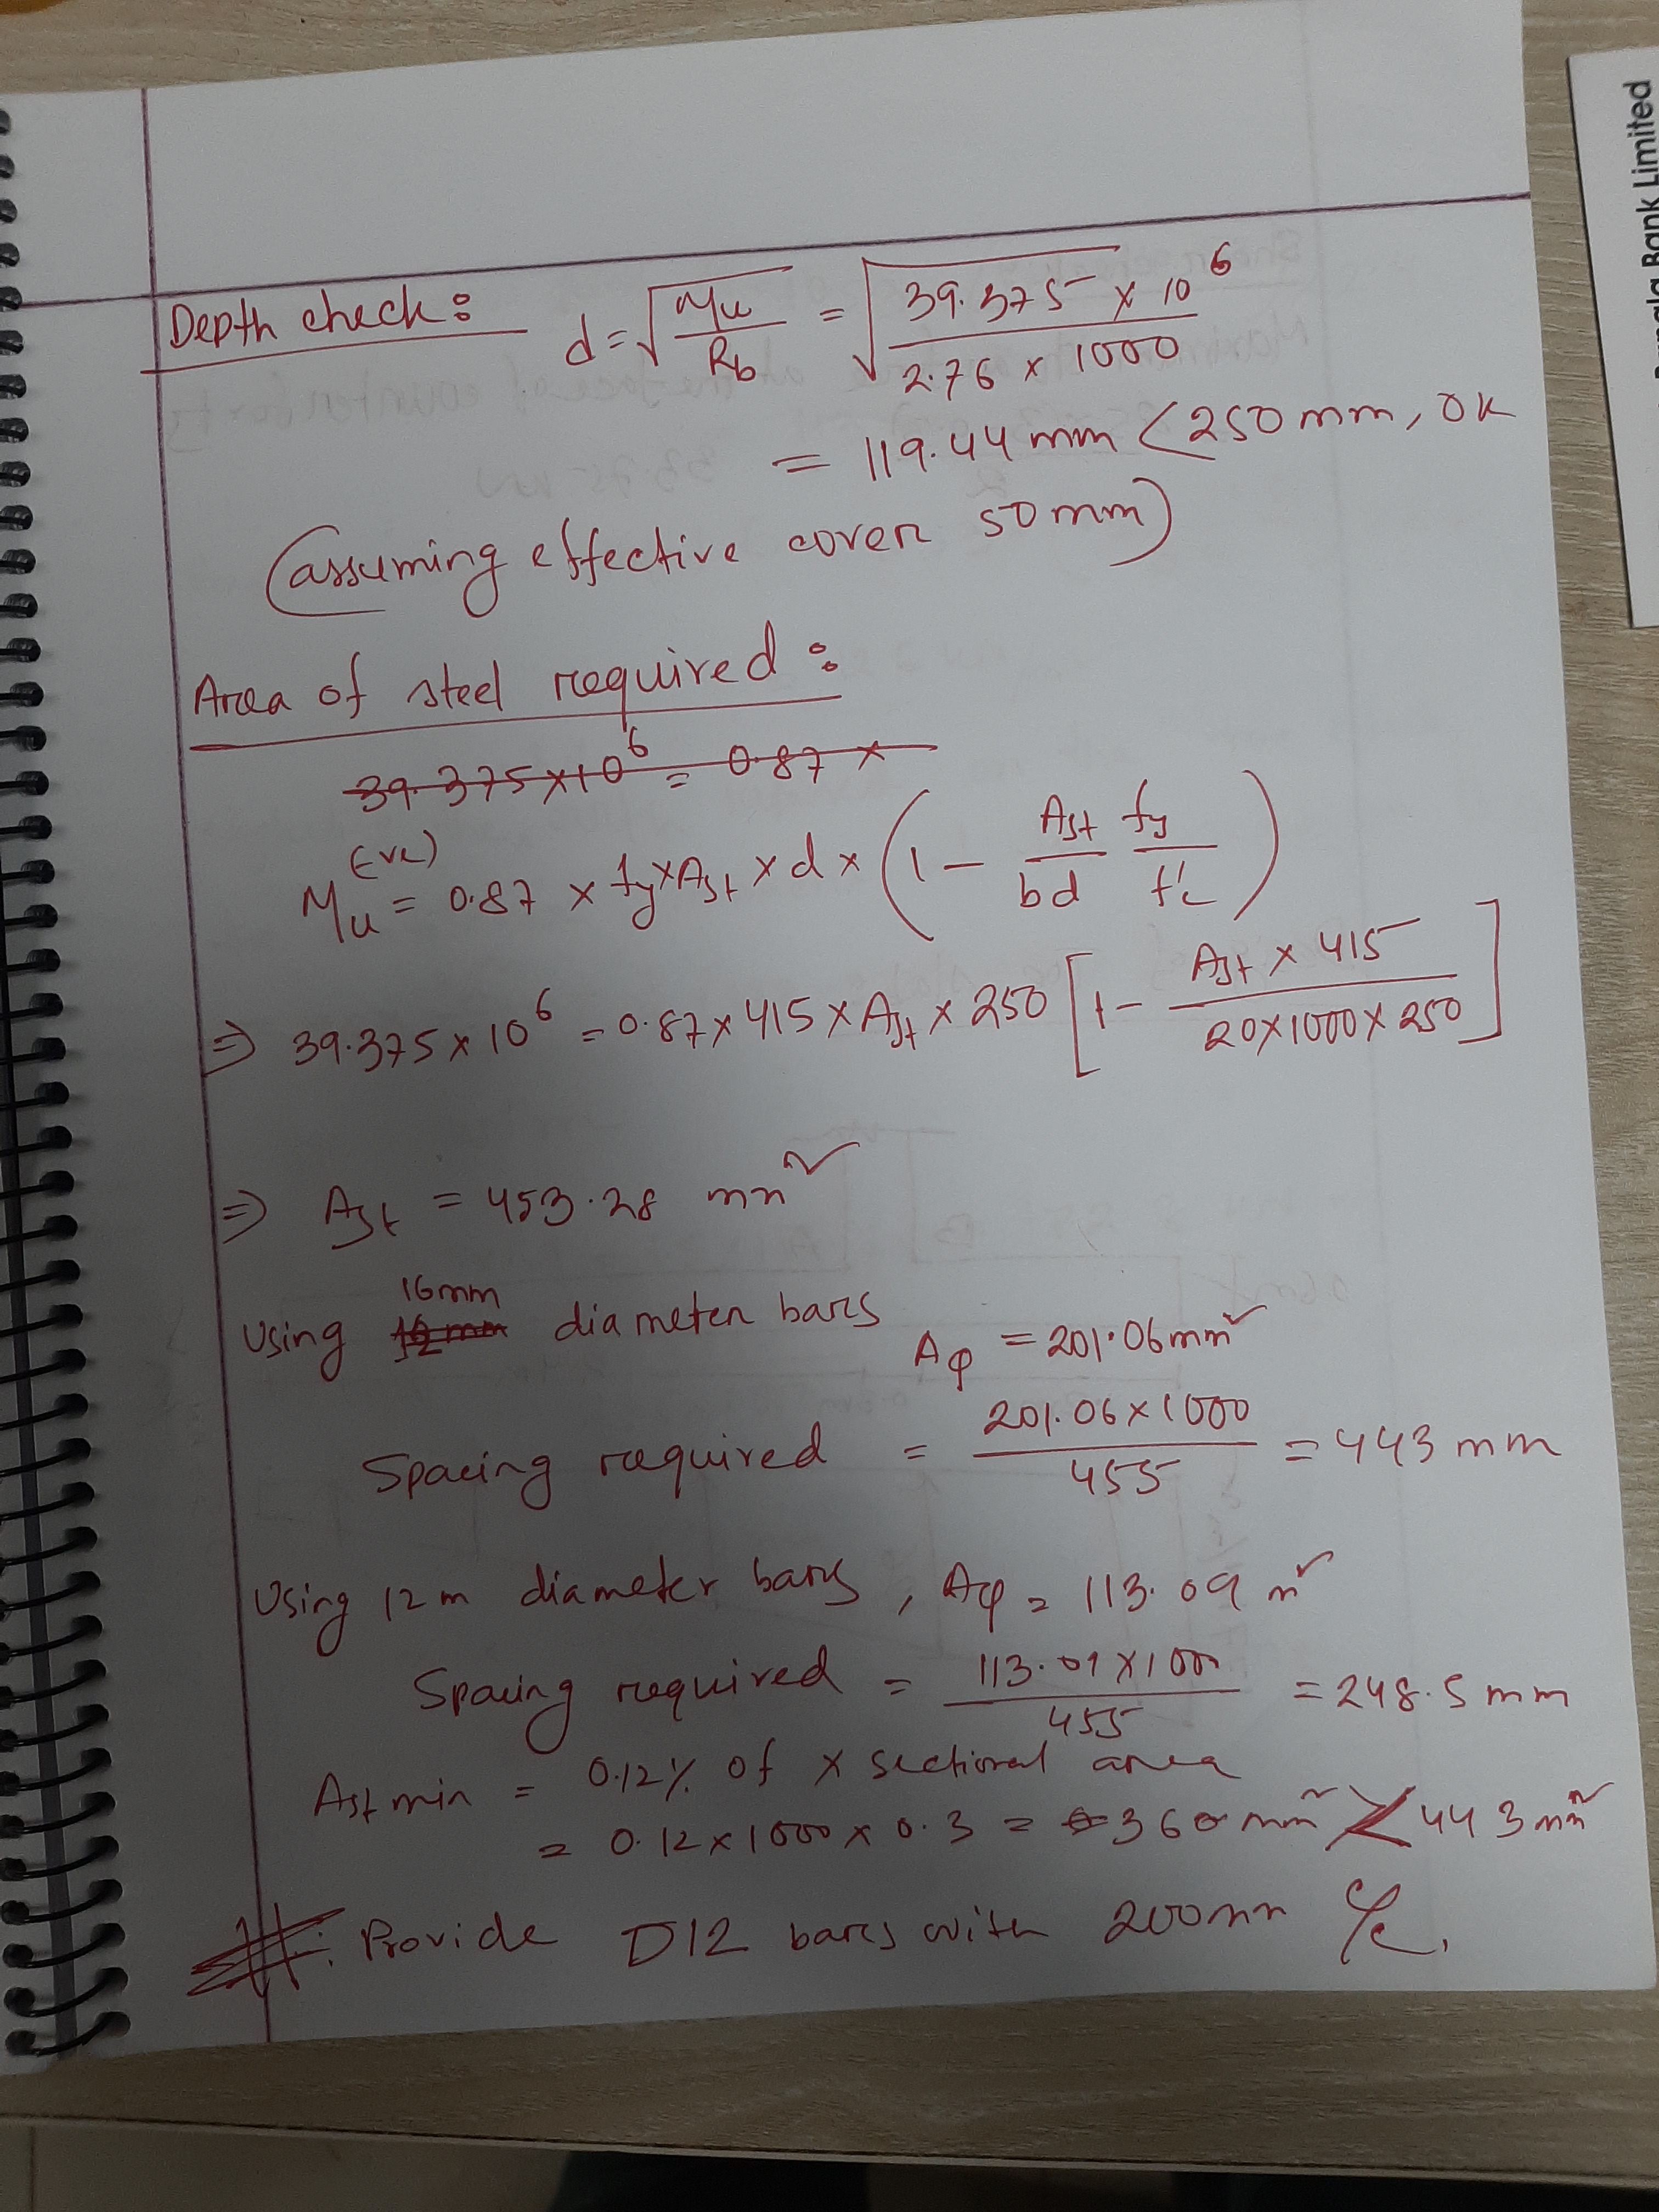 Depth check: d = √(Mu / Rb) = √(39.375 × 10^6 / 2.76 × 1000)
= 119.44 mm < 250 mm, OK
(assuming effective cover 50 mm)
Area of steel required:
39.375×10^6 = 0.87 ×
(-ve)
Mu = 0.87 × fy × Ast × d × (1 - Ast fy / bd f'c)
⇒ 39.375 × 10^6 = 0.87 × 415 × Ast × 250 [1 - Ast × 415 / 20×1000×250]
⇒ Ast = 453.28 mm²
16mm
Using 12mm diameter bars Aφ = 201.06 mm²
Spacing required = 201.06 × 1000 / 455 = 443 mm
Using 12 m diameter bars, Aφ = 113.09 m²
Spacing required = 113.09 × 1000 / 455 = 248.5 mm
Ast min = 0.12% of x sectional area
= 0.12 × 1000 × 0.3 = 360 mm² < 443 mm²
∴ Provide D12 bars with 200mm c/c.
Bangla Bank Limited